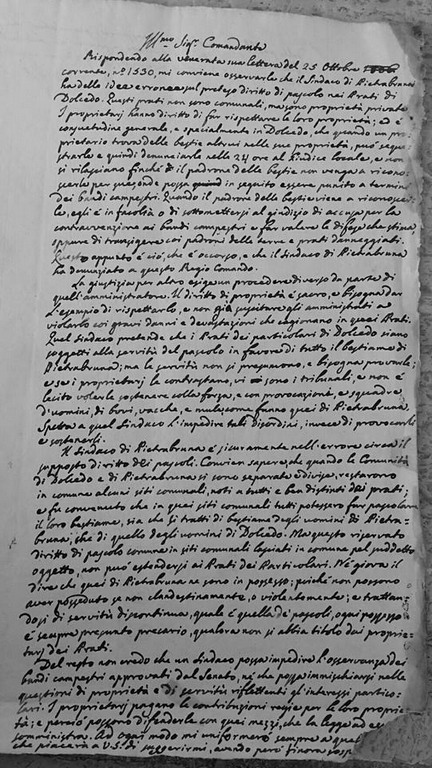 Ill.mo Sig.r Comandante
Rispondendo alla venerata sua lettera del 25 Ottobre
corrente, n.o 1530, mi conviene osservarle che il Sindaco di Pietrabruna
ha delle idee erronee sul preteso diritto di pascolo nei Prati di
Dolcedo. Questi prati non sono comunali, ma sono proprietà private.
I proprietarj hanno diritto di far rispettare le loro proprietà; ed è
consuetudine generale, e specialmente in Dolcedo, che quando un pro-
prietario trova delle bestie altrui nelle sue proprietà, può seque-
strarle e quindi denunciarle nelle 24 ore al Giudice locale, e non
si rilasciano finché il padrone delle bestie non venga a ricono-
scerle per sue, onde possa in seguito essere punito a termini
dei bandi campestri. Quando il padrone delle bestie viene a riconoscer-
le, egli è in facoltà o di sottomettersi al giudizio di accusa per la
contravvenzione ai bandi campestri e far valere le difese che stima,
oppure di transigere coi padroni delle terre e prati danneggiati.
Questo appunto è ciò, che è occorso, e che il Sindaco di Pietrabruna
ha denunziato a questo Regio Comando.
La giustizia per altro esige un procedere diverso da parte di
quell'amministratore. Il diritto di proprietà è sacro, e bisogna dar
l'esempio di rispettarlo, e non già suscitare gli amministrati a
violarlo coi gravi danni e devastazioni che cagionano in quei Prati.
Quel Sindaco pretende che i Prati dei particolari di Dolcedo siano
soggetti alla servitù del pascolo in favore di tutto il bestiame di
Pietrabruna; ma le servitù non si presumono, e bisogna provarle;
e se i proprietarj la contrastano, vi sono i tribunali, e non è
lecito volerle sostenere colla forza, e con provocazioni, e squadre
d'uomini, di bovi, vacche, e mule, come fanno quei di Pietrabruna.
Spetta a quel Sindaco l'impedire tali disordini, invece di provocarli
e sostenerli.
Il Sindaco di Pietrabruna è sicuramente nell'errore circa il
supposto diritto dei pascoli. Convien sapere che quando le Comunità
di Dolcedo e di Pietrabruna si sono separate e divise, restarono
in comune alcuni siti comunali, noti a tutti e ben distinti dai prati;
e fu convenuto che in quei siti comunali tutti potessero far pascolare
il loro bestiame, sia che si tratti di bestiame degli uomini di Pietra-
bruna, che di quello degli uomini di Dolcedo. Ma questo riservato
diritto di pascolo comune in siti comunali lasciati in comune pel suddetto
oggetto, non può estendersi ai Prati dei Particolari. Nè giova il
dire che quei di Pietrabruna ne sono in possesso; perché non possono
aver posseduto se non clandestinamente, o violentemente; e trattan-
dosi di servitù discontinua, quale è quella de' pascoli, ogni possesso
è sempre presunto precario, qualora non si abbia titolo dai proprie-
tarj dei Prati.
Del resto non credo che un Sindaco possa impedire l'osservanza dei
bandi campestri approvati dal Senato, nè che possa immischiarsi nelle
questioni di proprietà e di servitù riflettenti gl'interessi partico-
lari. I proprietarj pagano le contribuzioni regie per le loro proprie-
tà; e perciò possono difenderle con quei mezzi, che la legge ad essi
somministra. Ad ogni modo mi uniformerò sempre a quel
che piacerà a V.S. di suggerirmi, avendo però finora